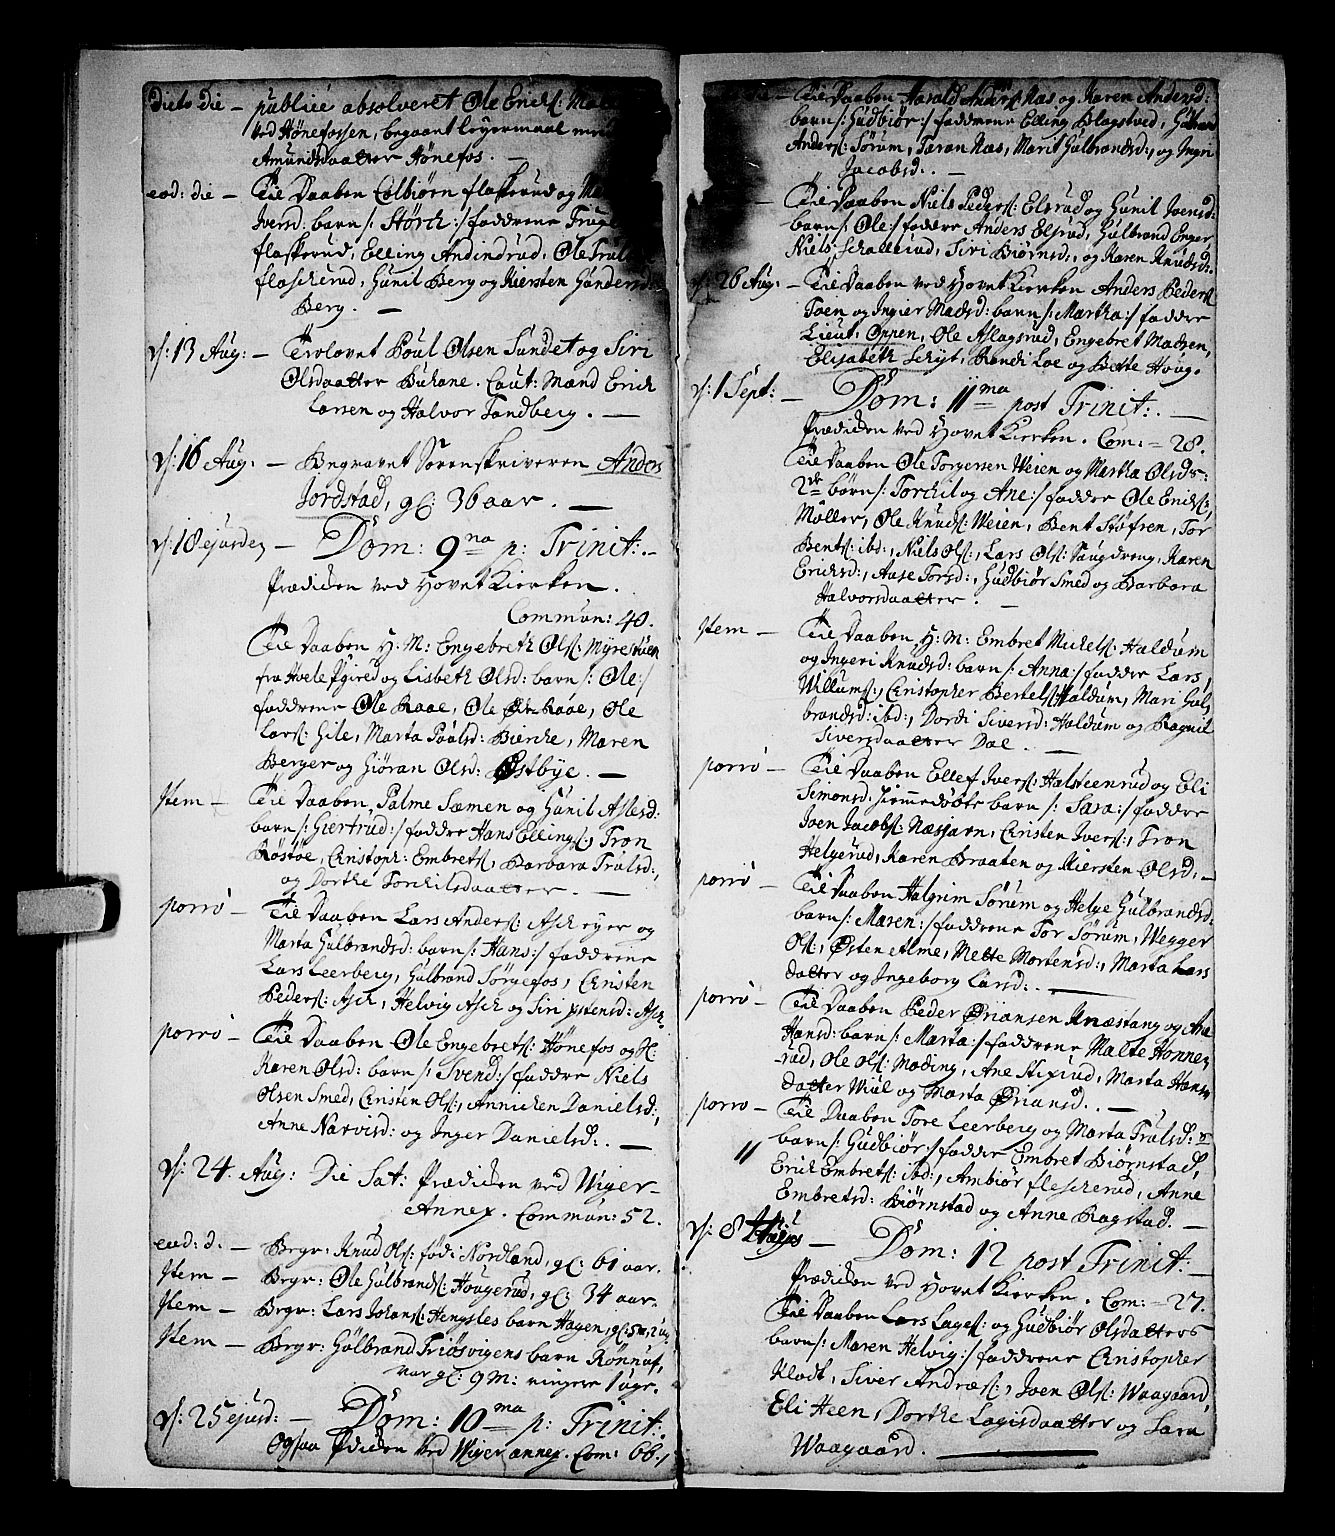 dicto die – publicé absolveret Ole Erichs:
ved Hønefossen, begaaet leyermaal med
Amundsdaatter Hønefos. –
eod: die – Til Daaben Colbiørn flaskerud og
Iversd: barn /: Størck :/ faddrene
flaskerud, Elling Andindrud, Ole
flascherud, Gunil Berg og Kiersten Gundersd:
Berg. –
d/: 13 Aug: – Trolovet Poul Olsen Sundet og Siri
Olsdaatter Buhane. Caut: Mænd Erich
Larsen og Halvor Tandberg. –
d/: 16 Aug: – Begravet Sorenskriveren Anders
Jordstad, gl: 36 aar. –
d/: 18 ejusdem – Dom: 9na p: Trinit: –
Prædiken ved Hovet Kierken.
Commun: 40.
Til Daaben H: M: Engebreth Ols: Myrestuen
fra Hole Pgield og Lisbeth Olsd: barn /: Ole :/
faddrene Ole Raae, Ole Raae, Ole
Lars: Hile, Marta Paalsd: Bierke, Maren
Berger og Giøran Olsd: Østbye. –
Item – Til Daaben Palme Sæmen og Gunil Aslesd:
barn /: Giertrud :/ faddre Hans Ellings:, Tron
Røstøe, Christoph: Embrets:, Barbara Trulsd:,
og Dorthe Torchilsdaatter. –
porrò – Til Daaben Lars Anders: Asch eyer og
Marta Gulbrandsd: barn /: Hans :/ faddrene
Lars Leerberg, Gulbrand Sørgefos, Christen
Peders: Asch, Helvig Asch og Siri xstensd: Asch.
porrò – Til Daaben Ole Engebrets: Hønefos og
Karen Olsd: barn /: Svend :/ faddre Niels
Olsen Smed, Christen Ols:, Annichen Danielsd:,
Anne Narvisd: og Inger Danielsd: –
d/: 24. Aug: Die Sat: Prædiken ved Wiger-
Annex. Commun: 52.
eod: d: – Begr: Knud Ols: fød i Nordland, gl: 61 aar.
Item – Begr: Ole Gulbrands: Hougerud, gl: 34 aar.
Item – Begr: Lars Johans: Hengsles barn Hagen, gl: 5 m, 2 ug
Item – Begr: Gulbrand Triøsvigens barn Rønnuf,
var gl: 9 M: ringere 1 uge.
d/: 25 ejusd: – Dom: 10ma p: Trinit:
Ogsaa Pdiken ved Wiger annex. Com: 66.
Til Daaben Harald Anders: Næs og Karen Andersd:
barn /: Gudbiør :/ faddrene Elling Blagsted, Gulbrand
Anders: Sørum, Taran Næs, Marit Gulbrandsd:, og Ingri
Jacobsd: –
– Til Daaben Niels Peders: Elsrud og Gunil Iversd:
barn /: Ole :/ faddre Anders Elsrud, Gulbrand Enger,
Niels Schallerud, Siri Biørnsd:, og Karen Knudsd:.
d/: 26 Aug: – Til Daaben ved Hovet Kierken Anders Peders:
Toen og Ingier Madsd: barn /: Martha :/ faddre
Lieut: Oppen, Ole Aslagsrud, Engebret Madsen,
Elisabeth Schyt, Randi Loe og Bette Houg.
d/: 1 Sept: – Dom: 11ma post Trinit: –
Prædiken ved Hovet Kierken. Com: = 28.
Til Daaben Ole Torgersen Weien og Martha Olsds:
2de børn /: Torchil og Ane :/ faddre Ole Erichs:
Møller, Ole Knuds: Weien, Bent Støfren, Tor
Bents: ibd:, Niels Ols:, Lars Ols: Saugdreng, Karen
Erichsd:, Aase Torsd:, Gudbiør Smed og Barbara
Halvorsdaatter. –
Item – Til Daaben H: M: Embret Michels: Haldum
og Ingeri Knudsd: barn /: Anna :/ faddre Lars
Willums:, Christopher Bertels: Haldum, Mari Gul-
brandsd: ibd:, Dordi Siversd: Haldum og Ragnil
Siversdaatter Dal. –
porrò – Til Daaben Ellef Ivers: Halsteenrud og Eli
Simonsd: barn /: Sara :/ faddre
Joen Jacobs: Næsjarn, Christen Ivers:, Tron
Helgerud, Karen Braaten og Kiersten Olsd: –
porrò – Til Daaben Halgrim Sørum og Helge Gulbrandsd:
barn /: Maren :/ faddrene Tor Sørum, Wegger
Ols:, Østen Alme, Mette Mortensd:, Marta Lars
datter og Ingeborg Larsd: –
porrò – Til Daaben Peder Øriansen Knæstang og Ane
Hansd: barn /: Marta :/ faddrene Malte Honne-
rud, Ole Ols: Moding, Ane Stixrud, Marta Hans
datter Wiul og Marta Øriansd: –
porrò – Til Daaben Tore Leerberg og Marta Trulsd:
barn /: Gudbiør :/ faddre Embret Biørnstad,
Erich Embrets: ibd:, Ambiør flescherud, Anne
Embretsd: Biørnstad og Anne Ragstad. –
d/: 8 – Dom: 12 post Trinit: –
Prædiken ved Hovet Kierken. Com: = 27.
Til Daaben Lars Lages: og Gudbiør Olsdatters
barn /: Maren Helvig :/ faddrene Christopher
Klodt, Siver Andræs:, Joen Ols: Waagaard,
Eli Heen, Dorthe Lagisdaatter og Sara
Waagaard. –